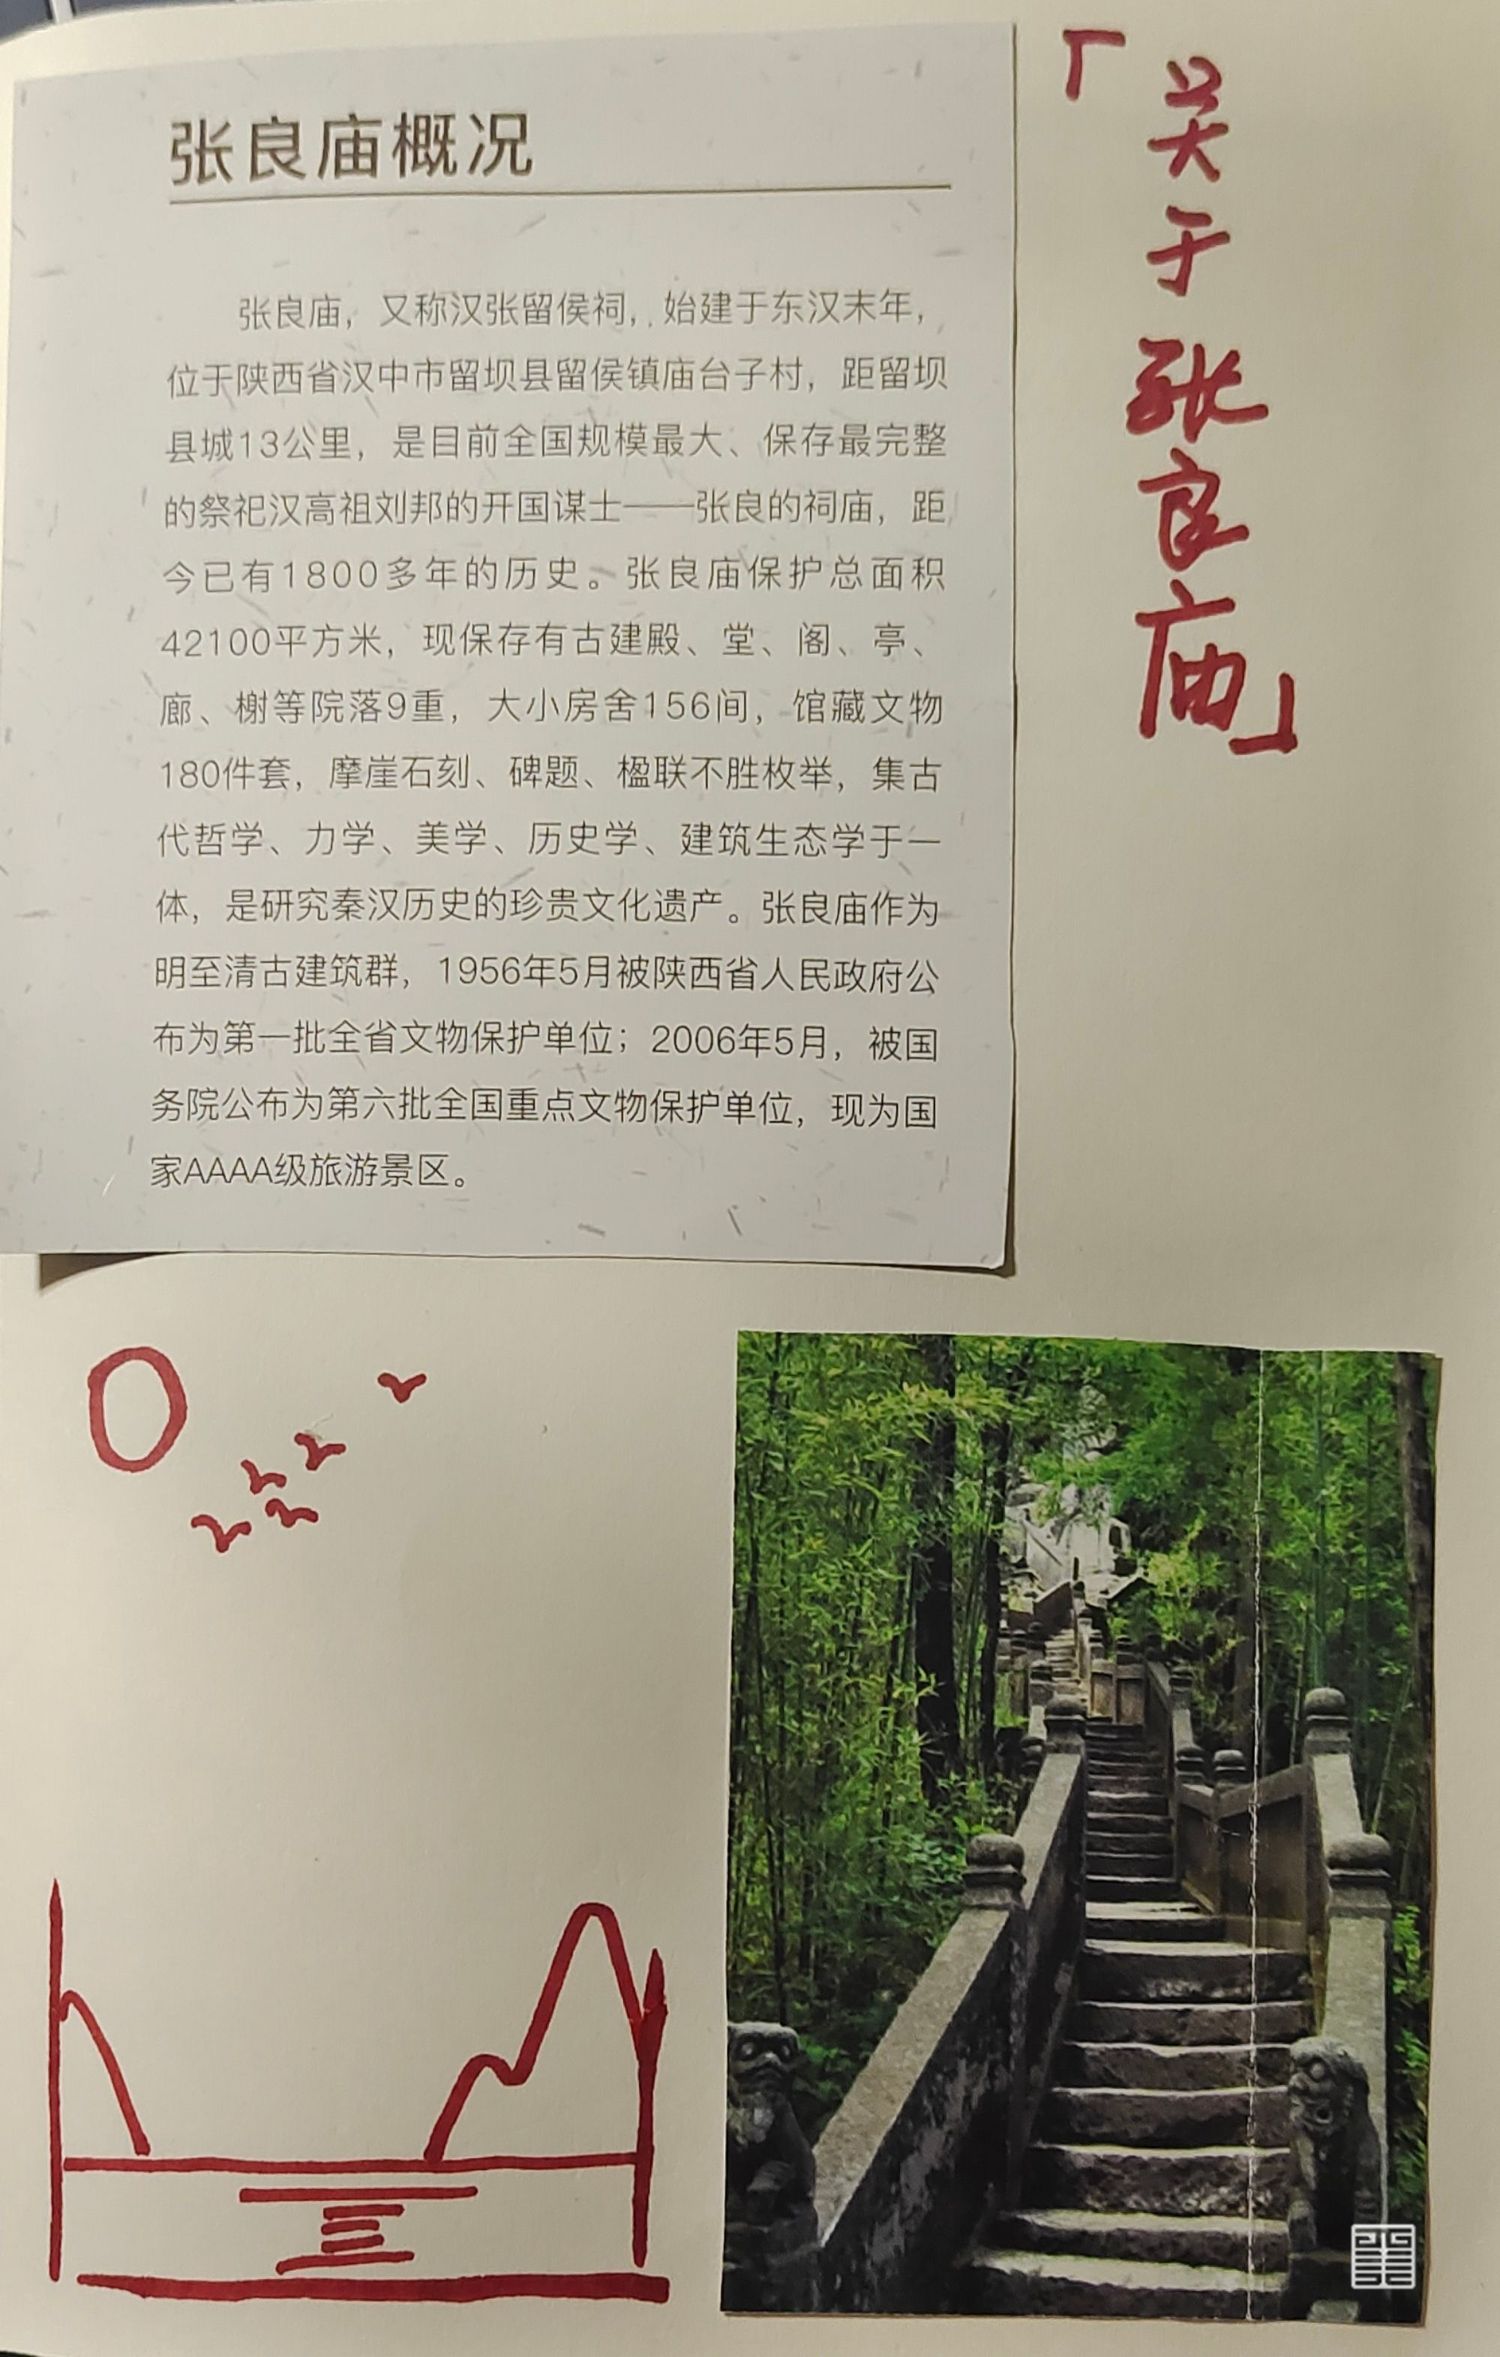 张良庙概况
张良庙，又称汉张留侯祠，始建于东汉末年，
位于陕西省汉中市留坝县留侯镇庙台子村，距留坝
县城13公里，是目前全国规模最大、保存最完整
的祭祀汉高祖刘邦的开国谋士——张良的祠庙，距
今已有1800多年的历史。张良庙保护总面积
42100平方米，现保存有古建殿、堂、阁、亭、
廊、榭等院落9重，大小房舍156间，馆藏文物
180件套，摩崖石刻、碑题、楹联不胜枚举，集古
代哲学、力学、美学、历史学、建筑生态学于一
体，是研究秦汉历史的珍贵文化遗产。张良庙作为
明至清古建筑群，1956年5月被陕西省人民政府公
布为第一批全省文物保护单位；2006年5月，被国
务院公布为第六批全国重点文物保护单位，现为国
家AAAA级旅游景区。
「关于张良庙」